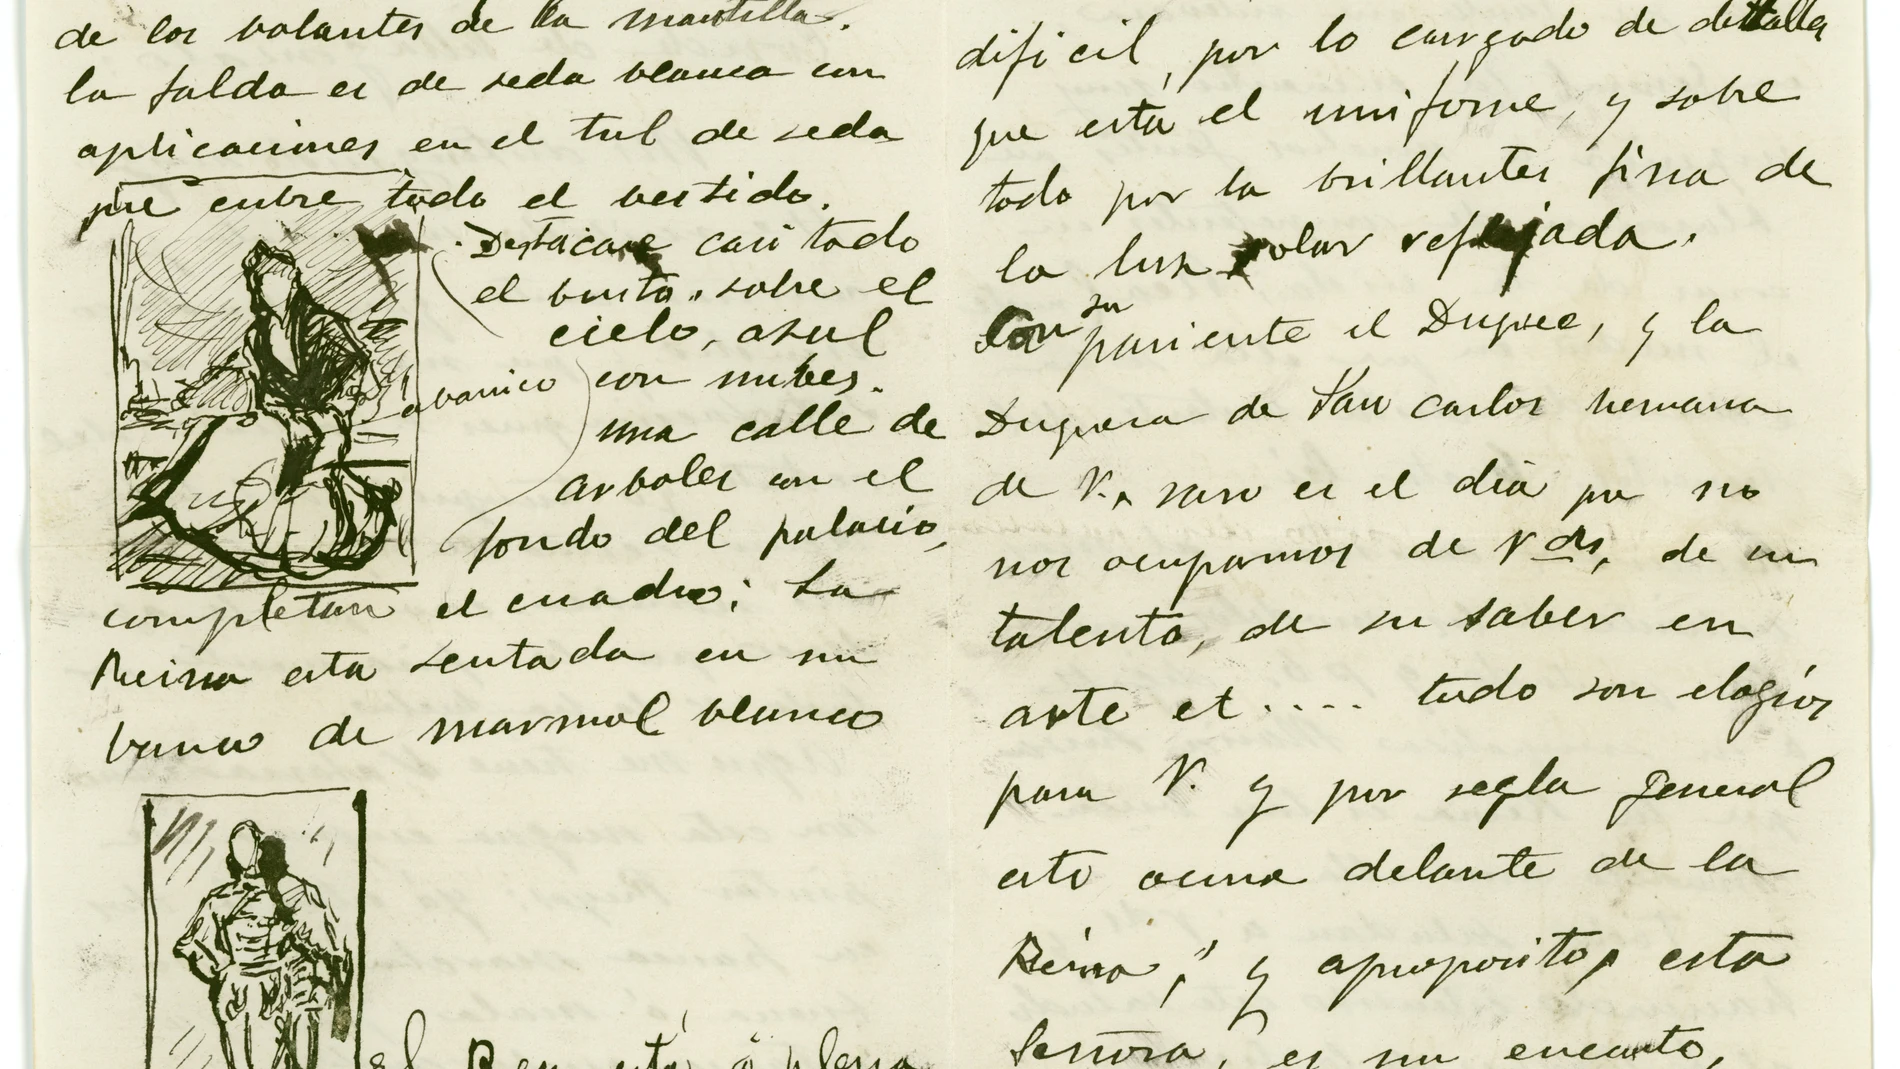 de los volantes de la mantilla.
la falda es de seda blanca con
aplicaciones en el tul de seda
que cubre todo el vestido.
Destacase casi todo
el busto, sobre el
cielo, azul
abanico
con nubes.
una calle de
arboles con el
fondo del palacio,
completan el cuadro; La
Reina esta sentada en un
banco de marmol blanco
el Rey está á plena
dificil, por lo cargado de detalles
que está el uniforme, y sobre
todo por la brillantes fina de
la luz solar reflejada.
Con su pariente el Duque, y la
Duquesa de San Carlos hermana
de V., raro es el dia que no
nos ocupamos de Vds, de su
talento, de su saber en
arte et.... todo son elogios
para V. y por regla general
esto ocurre delante de la
Reina; y aproposito, esta
Señora, es un encanto,